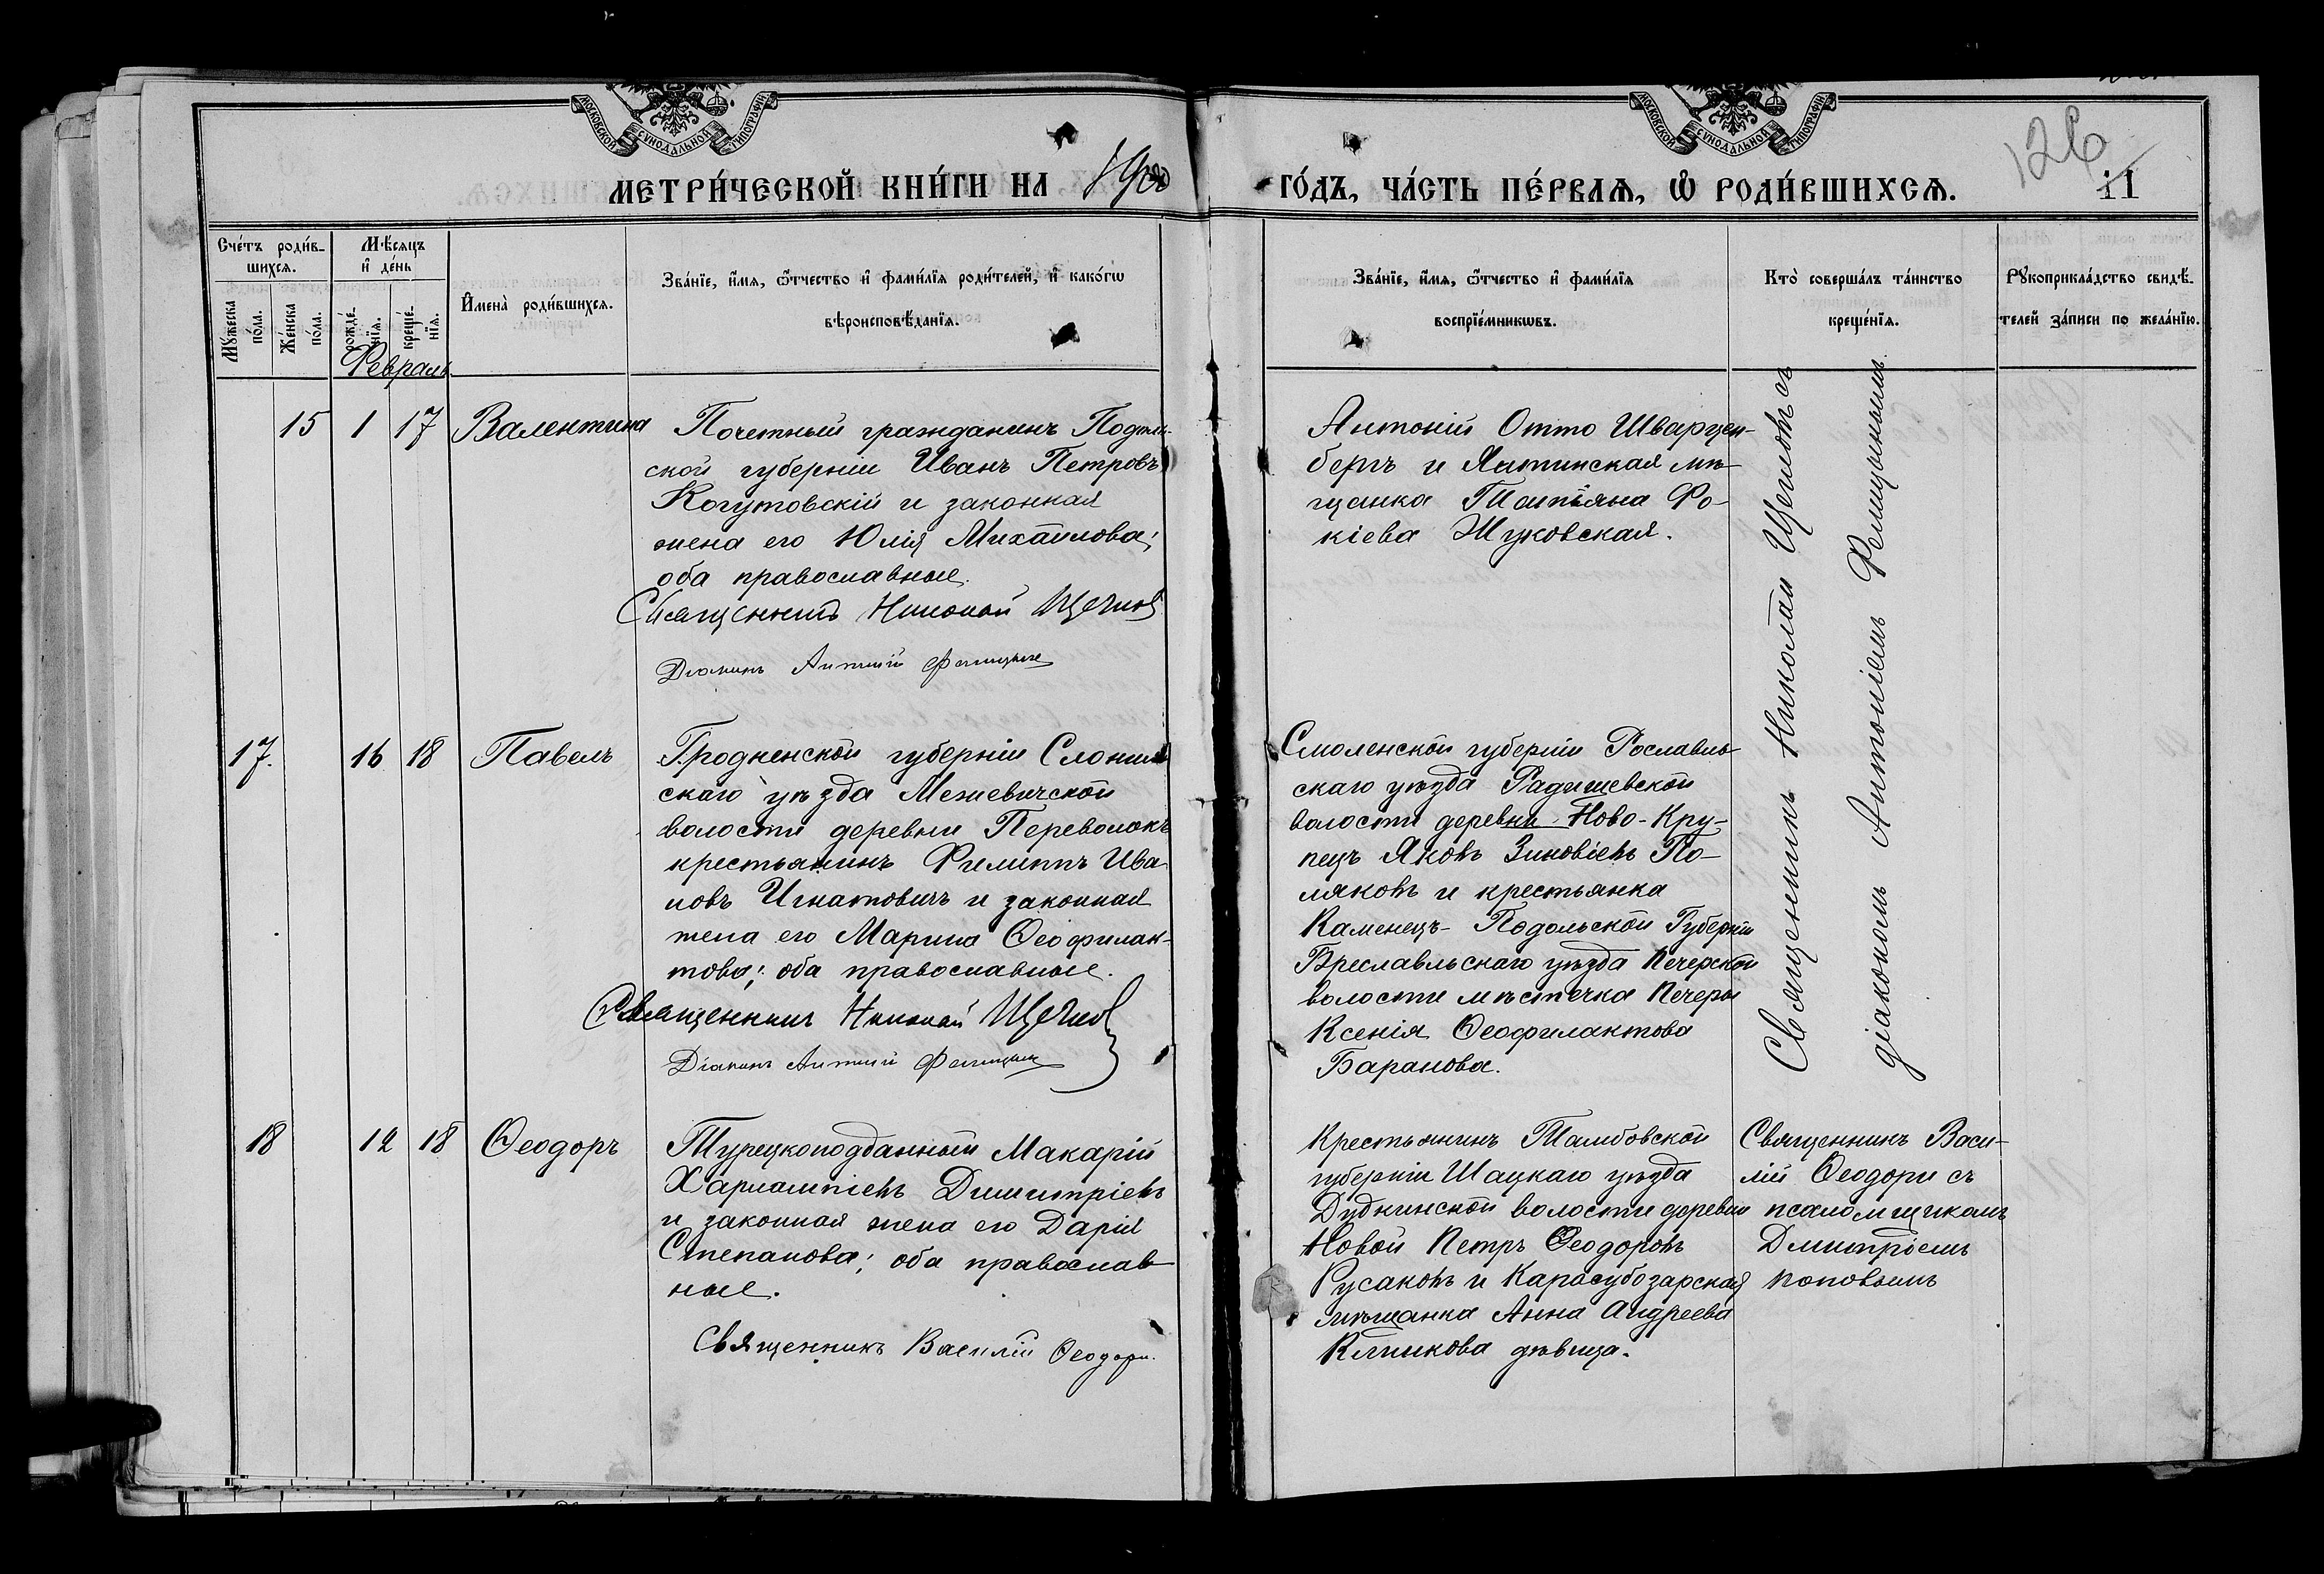 МОСКОВСКОЙ СУНОДАЛЬНОЙ ТИПОГРАФІИ
МОСКОВСКОЙ СУНОДАЛЬНОЙ ТИПОГРАФІИ
126
МЕТРИ́ЧЕСКОЙ КНИ́ГИ НА 1900
ГО́ДЪ, ЧА́СТЬ ПЕ́РВАѦ, Ѽ РОДИ́ВШИХСѦ.
11
Сче́тъ роди́в-
шихсѧ.
Мꙋ́жеска
по́ла.
Же́нска
по́ла.
Мѣ́сяцъ
и҆ де́нь
рожде́-
нїѧ.
креще́-
нїѧ.
Февраль
И҆мена̀ роди́вшихсѧ.
Зва́нїе, и҆́мѧ, ѻ҆́тчество и҆ фами́лїѧ роди́телей, и҆ како́гѡ
вѣроисповѣ́данїѧ.
Зва́нїе, и҆́мѧ, ѻ҆́тчество и҆ фами́лїѧ
воспрїе́мникѡвъ.
Кто̀ соверша́лъ та́инство
креще́нїѧ.
Рꙋкоприкла́дство свидѣ́-
телей за́писи по жела́нїю.
15 1 17 Валентина
Почетный гражданинъ Подоль-
ской губерніи Иванъ Петровъ
Когутовскій и законная
жена его Юлія Михаилова;
оба православные.
Священникъ Николай Щегловъ
Діаконъ Антоній
Антоній Отто Шварцен-
бергъ и Ялтинская мѣ-
щанка Татіяна Фо-
кіева Жуковская.
Священникъ Николай Щегловъ съ
діакономъ Антоніемъ
17. 16 18 Павелъ
Гродненской губерніи Слоним-
скаго уѣзда Межевичской
волости деревни Переволокъ
крестьянинъ Филиппъ Ива-
новъ Игнатовичъ и законная
жена его Марина Ѳеофилак-
това; оба православные.
Священникъ Николай Щегловъ
Діаконъ Антоній
Смоленской губерніи Рославль-
скаго уѣзда Радищевской
волости деревни Ново-Кру-
пецъ Яковъ Зиновіевъ По-
ляковъ и крестьянка
Каменецъ-Подольской Губерніи
Бреславльскаго уѣзда Печерской
волости мѣстечка Печеры
Ксенія Ѳеофилактова
Баранова.
18 12 18 Ѳеодоръ
Турецкоподданный Макарій
Харлампіевъ Димитріевъ
и законная жена его Дарія
Степанова; оба православ-
ные.
Священникъ Василій Ѳеодори.
Крестьянинъ Тамбовской
губерніи Шацкаго уѣзда
Дудкинской волости деревни
Новой Петръ Ѳеодоровъ
Русаковъ и Карасубазарская
мѣщанка Анна Андреева
дѣвица.
Священникъ Васи-
лій Ѳеодори съ
псаломщикомъ
Дмитріемъ
Поповымъ